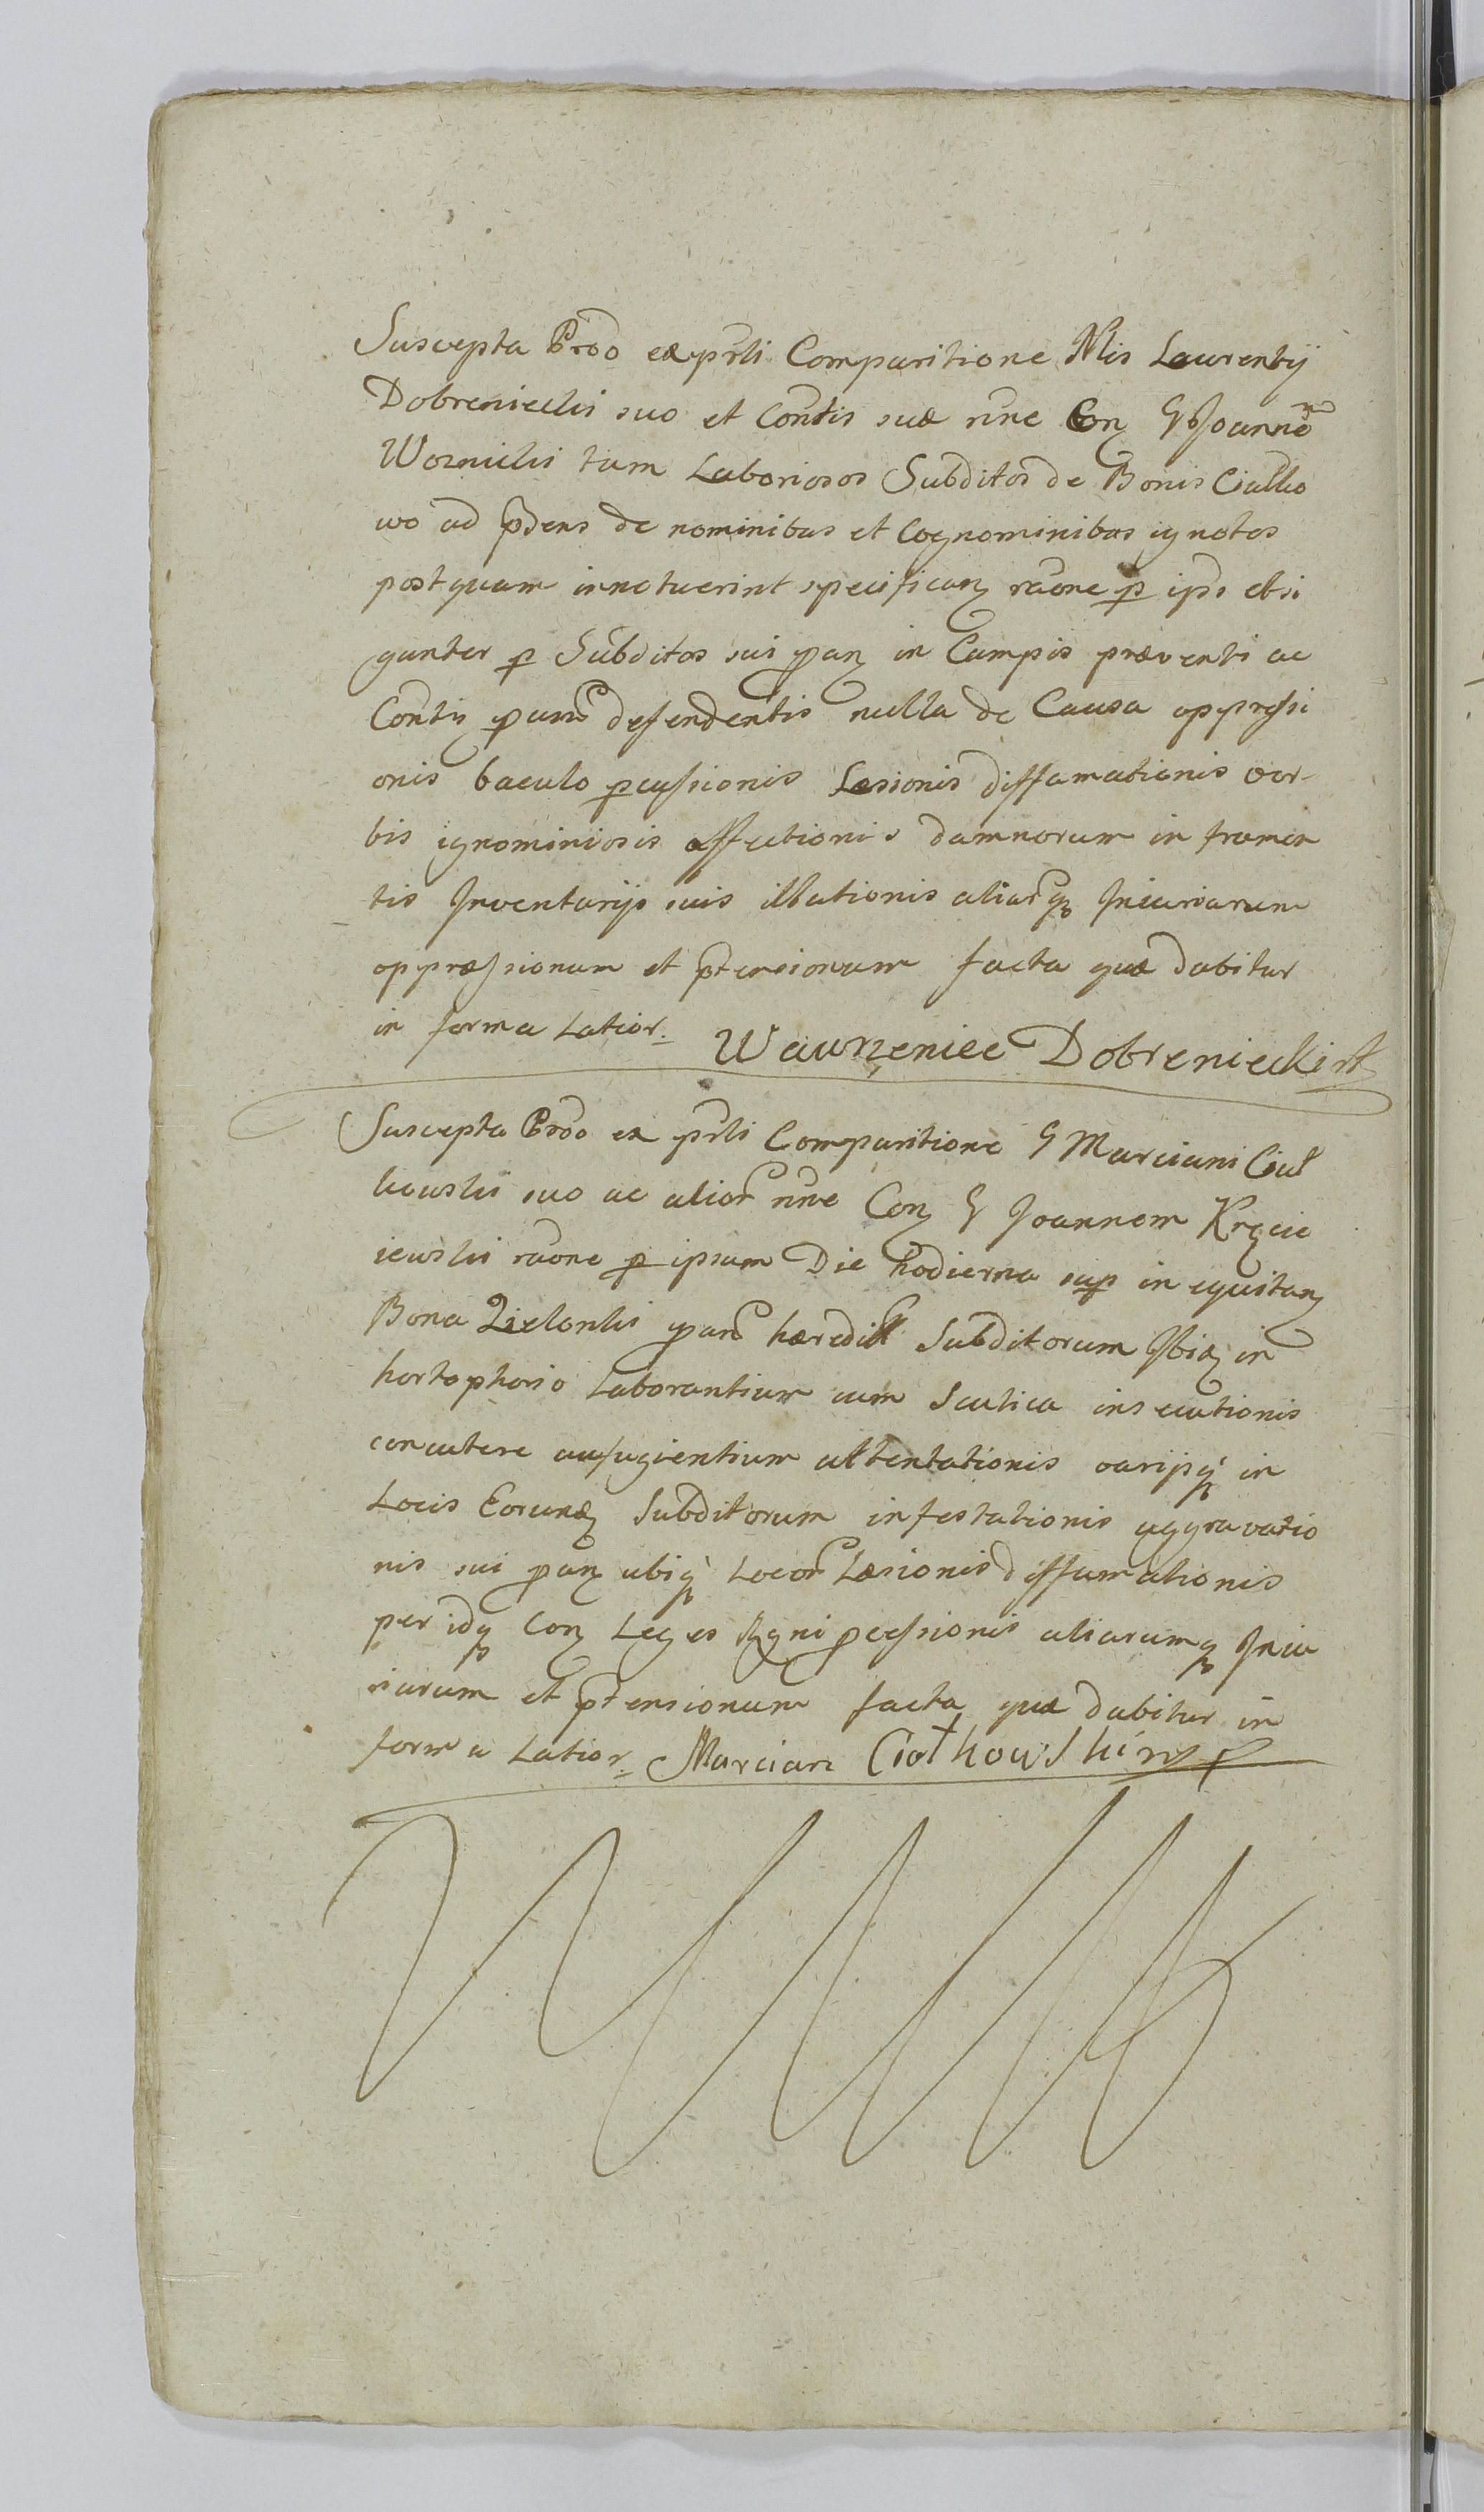 Suscepta Prõo ex prŝli Comparitione Nlis Laurentij
Dobreniecki suo et Contis suæ nñe Con G Joannẽ
Woznicki tum Laboriosos Subditos de Bonis Ciołko
wo ad p̃dens de nominibus et Cognominibus ignotos
postquam innotuerint specifican raõne p ips
p Subditos sui pan in Campis præventi ac
Contis defendentis nulla de Causa oppressi
onis baculo pcussionis Læsionis diffamationis ver-
bis ignominiosis affectionis damnorum in frumen
tis Inventarijs suis illationis aliarq Iniuriarum
oppræssionum et p̃tensionum facta quæ dabitur
in forma Latior.
Wawrzeniec Dobreniecki
Suscepta Prõo ex prŝli Comparitione G Marciani Cioł
kowski suo ac alior nñe Con G Joannem Kręcie
iewski raõne p ipsum Die hodierna sup in equitan
Bona Zielonki hæredit Subditorum Ibiq in
hortophorio Laborantium cum Scutica insecutionis
concutere aufugientium attentationis varijsq in
Locis Eorund Subditorum infestationis aggravatio
nis sui pan ubiq Locor Læsionis diffamationis
per idq Con Leges Regni pcessionis aliarumq Iniu
riarum et p̃tensionum facta quæ dabitur in
forma Latior. Marcian Ciołkowski